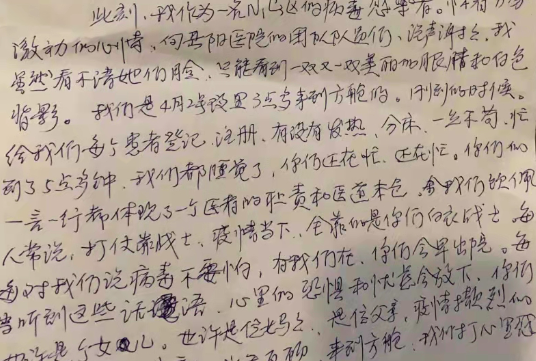 此刻,我作为一名N社区的病毒感染者。怀着万分
激动的心情,向岳阳医院的团队队员们,说声谢谢,我
虽然看不清她们的脸,只能看到一双又一双美丽的眼睛和白色
背影。我们是4月2号晚里3点多来到方舱的。刚到的时候。
给我们每个患者登记、注册、有没有发热,分床,一丝不苟,忙
到了5点多钟,我们都睡觉了,你们还在忙、还在忙。你们的
一言一行都体现了一个医者的职责和医道本色。令我们钦佩
人常说,打仗靠战士、疫情当下,全靠的是你们白衣战士。每
每对我们说病毒不要怕,有我们在,你们会早出院。每
当听到这些话语,心里的恐惧和忧虑会放下,你们
也许是个女儿。也许是位妈妈、是位父亲,疫情
来到方舱,我们打心里